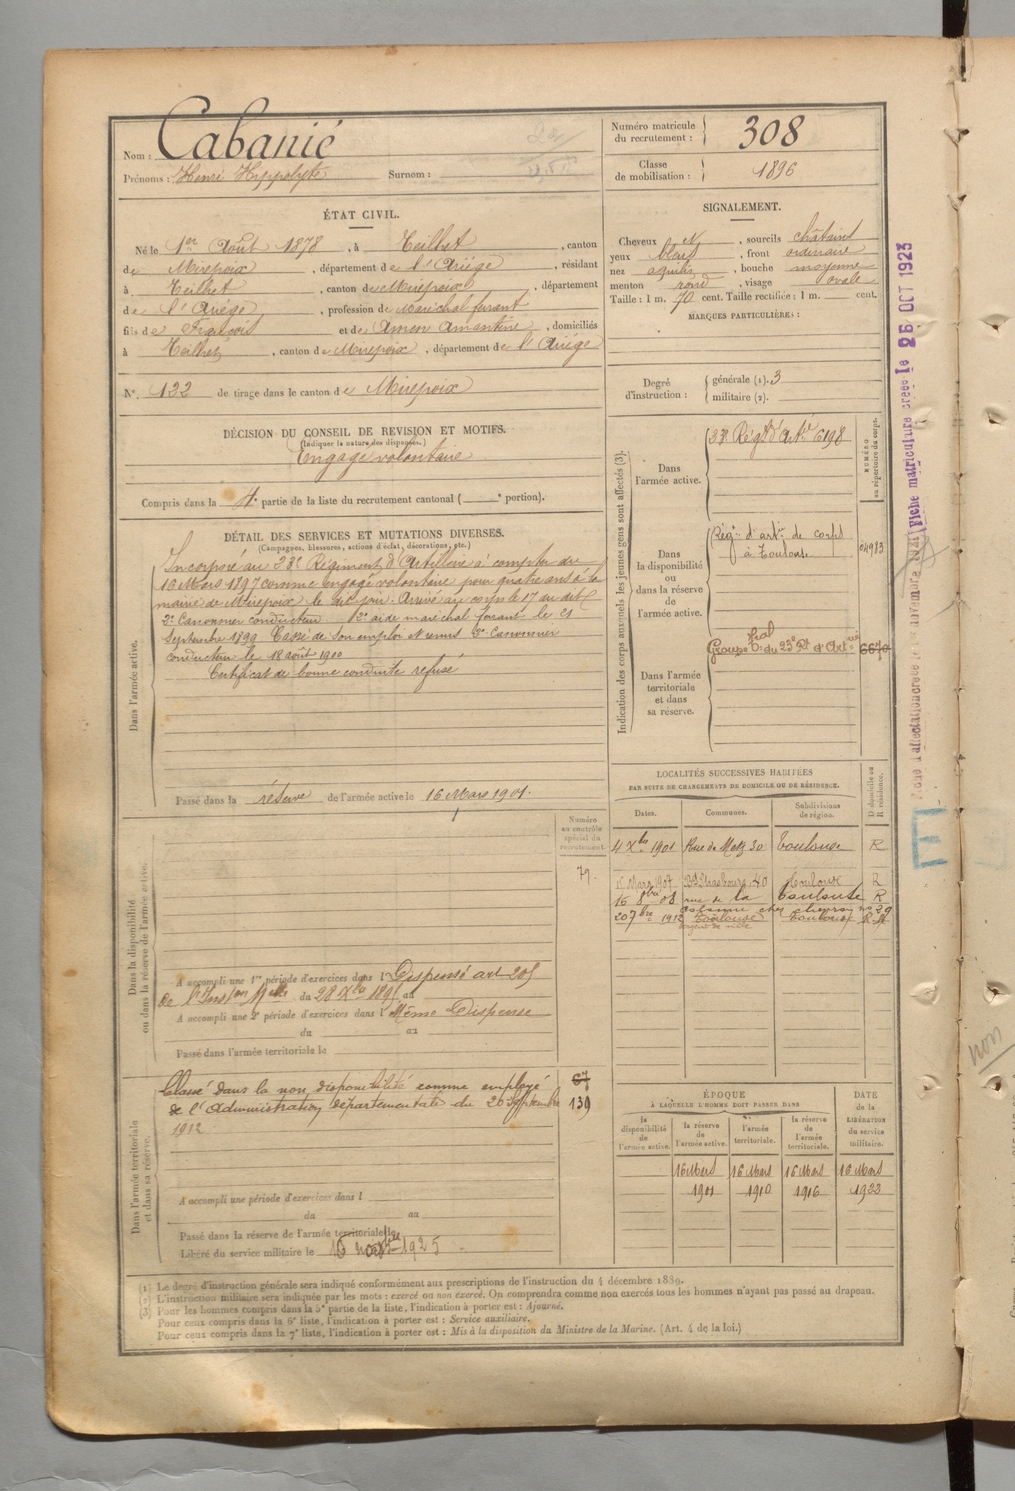 Nom : Cabanié
Prénoms : Henri Hippolyte Surnom :
Numéro matricule du recrutement : 308
Classe de mobilisation : 1896
ÉTAT CIVIL.
Né le 1er Août 1878, à Teilhet, canton
de Mirepoix, département de l'Ariège, résidant
à Teilhet, canton de Mirepoix, département
de l'Ariège, profession de Maréchal ferrant
fils de François et de Amen Amantine, domiciliés
à Teilhet, canton de Mirepoix, département de l'Ariège
N° 132 de tirage dans le canton de Mirepoix
SIGNALEMENT.
Cheveux et, sourcils châtains
yeux bleus, front ordinaire
nez aquilin, bouche moyenne
menton rond, visage ovale
Taille : 1 m. 70 cent. Taille rectifiée : 1 m. cent.
MARQUES PARTICULIÈRES :
Degré d'instruction : générale (1). 3
militaire (2).
DÉCISION DU CONSEIL DE REVISION ET MOTIFS.
(Indiquer la nature des dispenses.)
Engagé volontaire
Compris dans la 4e partie de la liste du recrutement cantonal ( e portion).
DÉTAIL DES SERVICES ET MUTATIONS DIVERSES.
(Campagnes, blessures, actions d'éclat, décorations, etc.)
Dans l'armée active.
Incorporé au 23e Régiment d'Artillerie à compter du
16 Mars 1897 comme engagé volontaire pour quatre ans à la
mairie de Mirepoix le dit jour. Arrivé au corps le 17 au dit
2e Canonnier conducteur aide maréchal ferrant le 21
Septembre 1899 Cassé de son emploi et remis 2e Canonnier
conducteur le 18 août 1900
Certificat de bonne conduite refusé
Passé dans la réserve de l'armée active le 16 Mars 1901.
Indication des corps auxquels les jeunes gens sont affectés (3).
NUMÉRO au répertoire du corps.
Dans l'armée active.
23e Régt d'Arte 6198
Dans la disponibilité ou dans la réserve de l'armée active.
Régt d'artie de corps
à Toulouse
04983
Dans l'armée territoriale et dans sa réserve.
Groupe tal du 23e Rt d'Artie
6670
Fiche matriculaire créée le 26 OCT 1923
LOCALITÉS SUCCESSIVES HABITÉES
PAR SUITE DE CHANGEMENTS DE DOMICILE OU DE RÉSIDENCE.
Dates. Communes. Subdivisions de région. D domicile ou R résidence.
4 Xbre 1901 Rue de Metz 30 Toulouse R
Mars 1907 Bd Strasbourg 40 Toulouse R
16 8bre 08 rue de la Toulouse R
20 7bre 1912 Toulouse Toulouse
Numéro au contrôle spécial du recrutement.
79.
Dans la disponibilité ou dans la réserve de l'armée active.
A accompli une 1re période d'exercices dans l Dispensé art 205
de l'Instion Mlle du 28 Xbre 1895 au
A accompli une 2e période d'exercices dans l Même Dispense
du au
Passé dans l'armée territoriale le
Dans l'armée territoriale et dans sa réserve.
Classé dans la non disponibilité comme employé
de l'Administration départementale du 20 Septembre
1912
67
139
A accompli une période d'exercices dans l
du au
Passé dans la réserve de l'armée territoriale le
Libéré du service militaire le 10 1925
ÉPOQUE
À LAQUELLE L'HOMME DOIT PASSER DANS
la disponibilité de l'armée active. la réserve de l'armée active. l'armée territoriale. la réserve de l'armée territoriale. DATE de la LIBÉRATION du service militaire.
16 Mars 16 Mars 16 Mars 16 Mars
1901 1910 1916 1923
non
(1) Le degré d'instruction générale sera indiqué conformément aux prescriptions de l'instruction du 4 décembre 1889.
(2) L'instruction militaire sera indiquée par les mots : exercé ou non exercé. On comprendra comme non exercés tous les hommes n'ayant pas passé au drapeau.
(3) Pour les hommes compris dans la 5e partie de la liste, l'indication à porter est : Ajourné.
Pour ceux compris dans la 6e liste, l'indication à porter est : Service auxiliaire.
Pour ceux compris dans la 7e liste, l'indication à porter est : Mis à la disposition du Ministre de la Marine. (Art. 4 de la loi.)